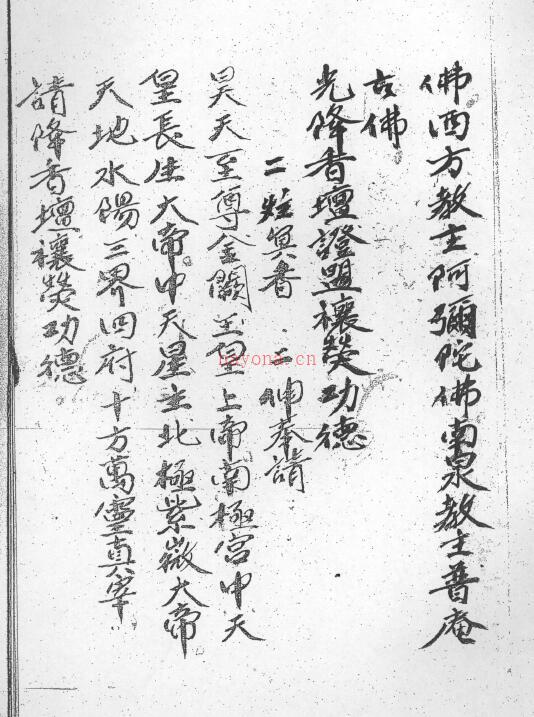 佛西方教主阿彌陀佛南泉教主普庵
古佛
光降香壇證盟禳熒功德
二炷冥香 二伸奉請
昊天至尊金闕玉皇上帝南極宮中天
皇長生大帝中天星主北極紫微大帝
天地水陽三界四府十方萬靈真宰
請降香壇禳熒功德
nayona.cn